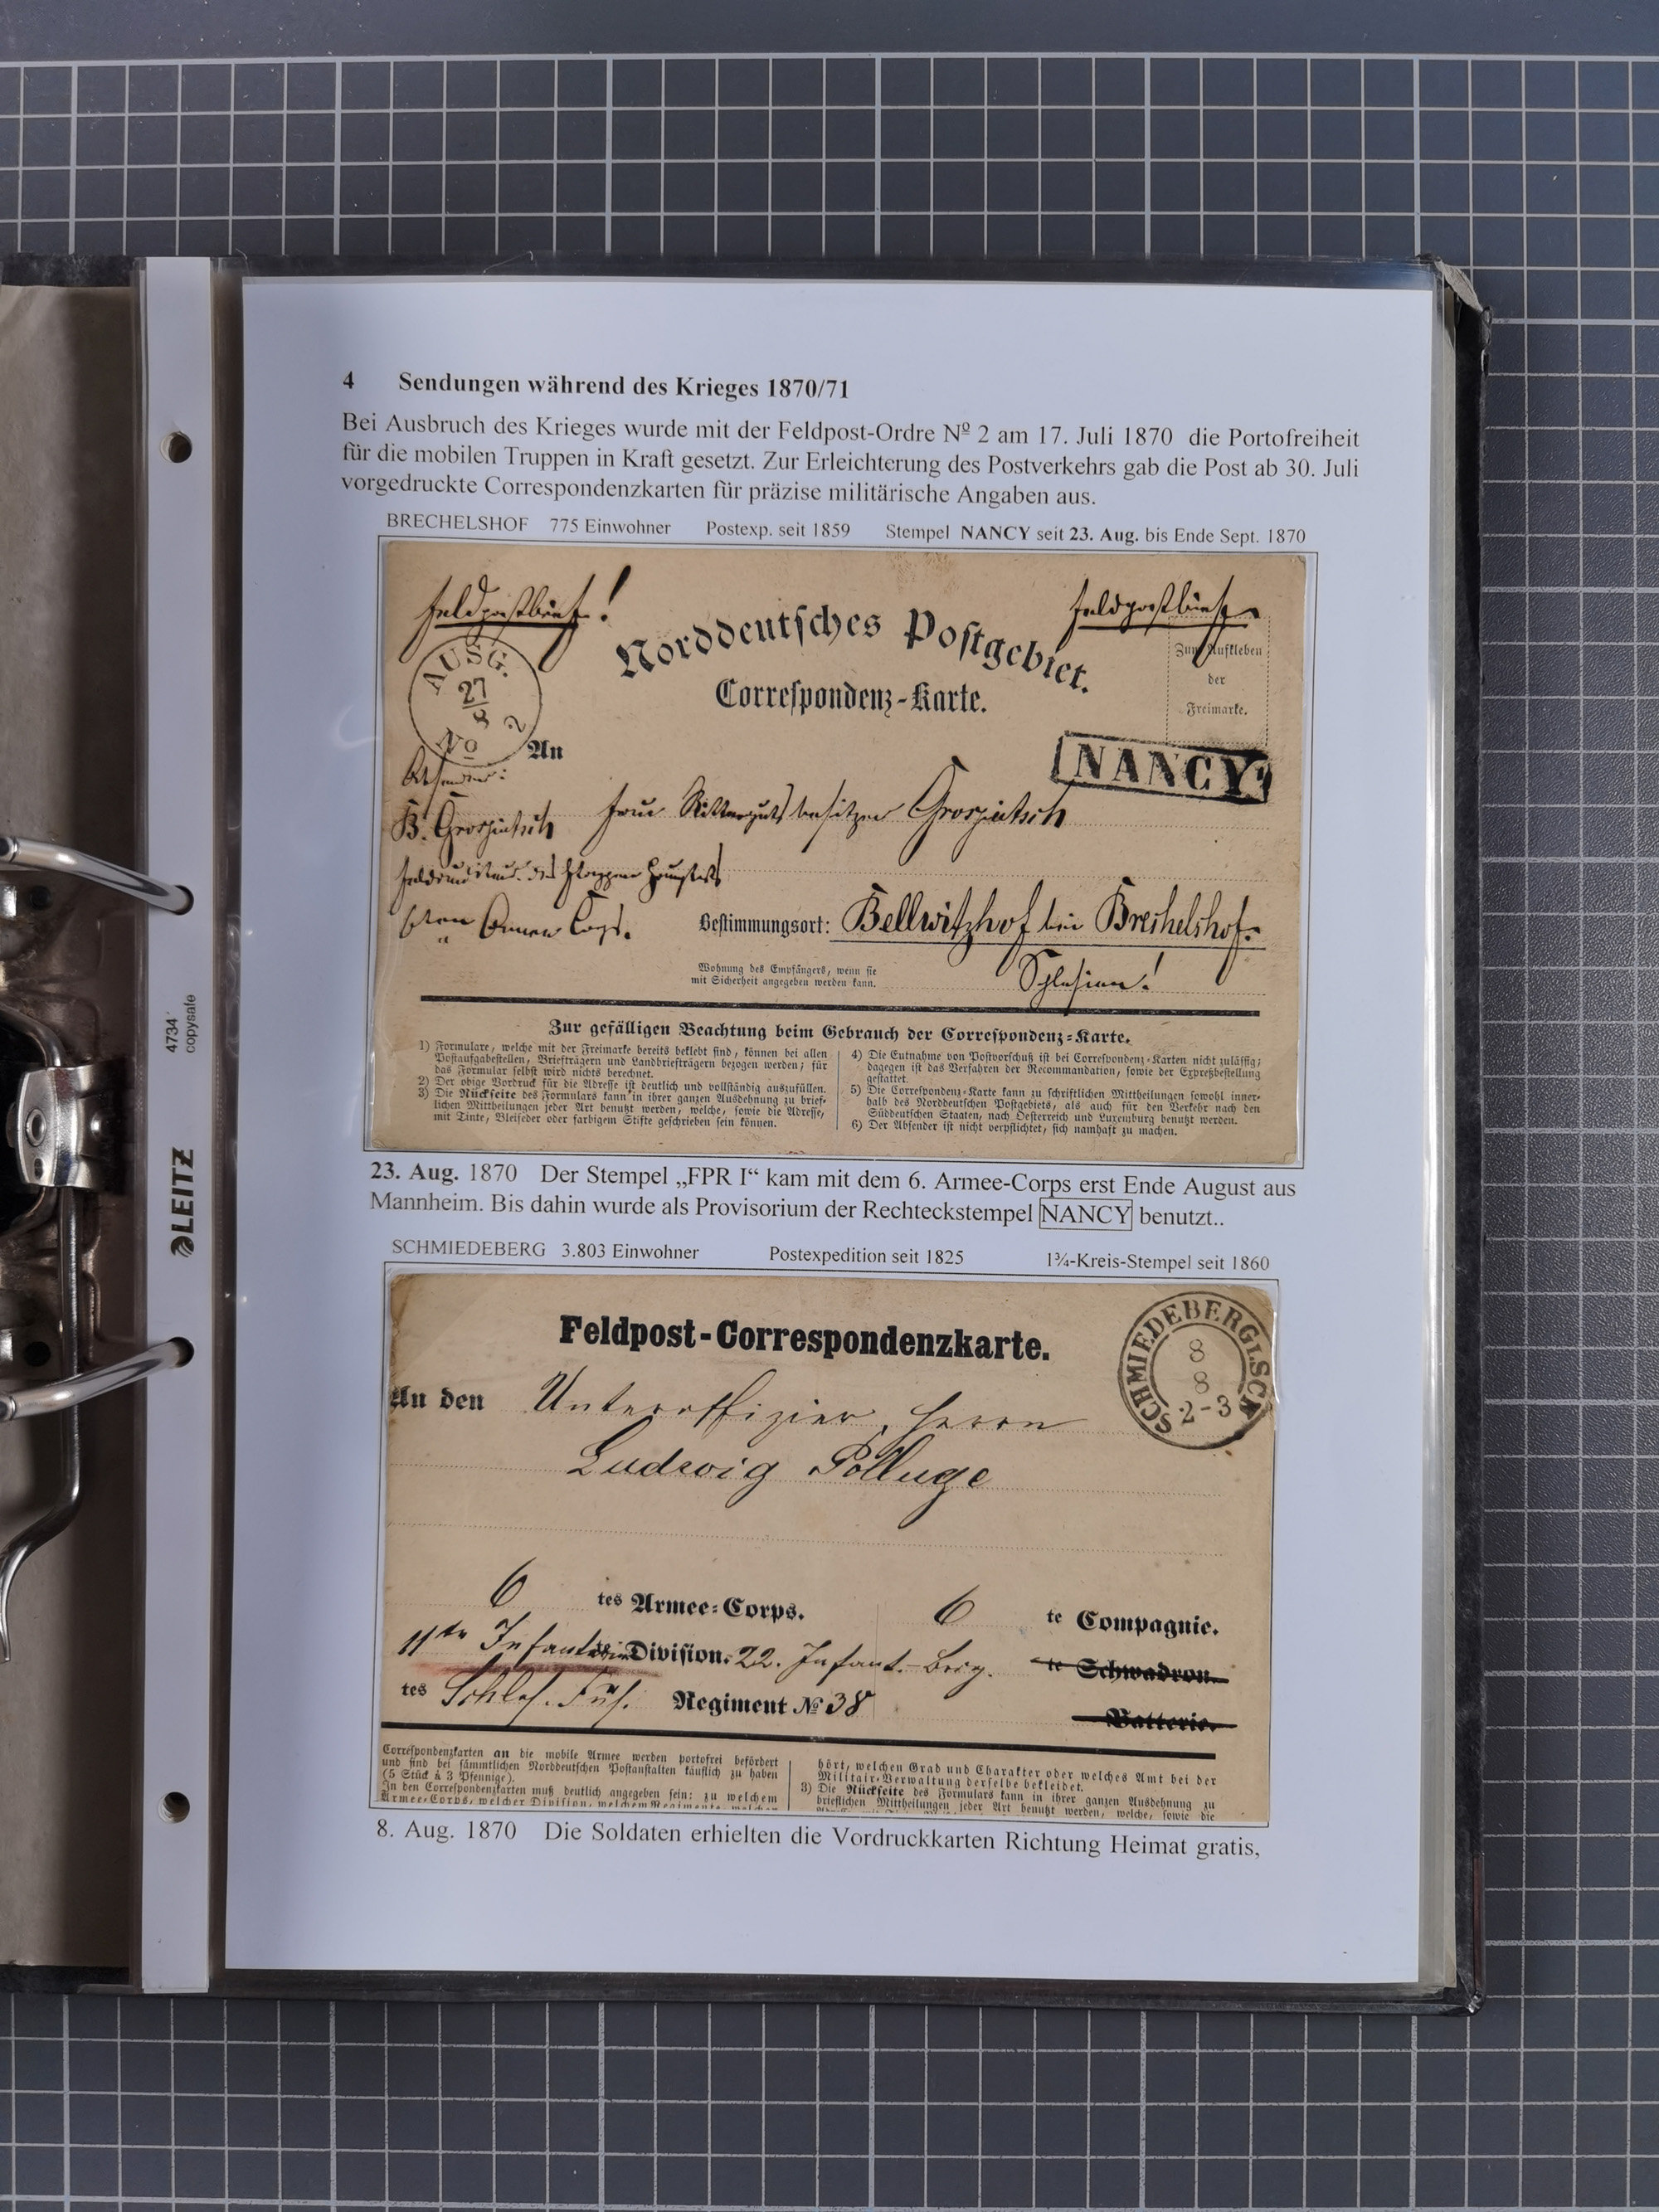 4 Sendungen während des Krieges 1870/71
Bei Ausbruch des Krieges wurde mit der Feldpost-Ordre Nº 2 am 17. Juli 1870 die Portofreiheit
für die mobilen Truppen in Kraft gesetzt. Zur Erleichterung des Postverkehrs gab die Post ab 30. Juli
vorgedruckte Correspondenzkarten für präzise militärische Angaben aus.
BRECHELSHOF 775 Einwohner Postexp. seit 1859 Stempel NANCY seit 23. Aug. bis Ende Sept. 1870
Feldpostbrief! Feldpostbrief
Norddeutsches Postgebiet.
Correspondenz-Karte.
Zum Aufkleben
der
Freimarke.
AUSG.
27
8
No 2
An
NANCY
Absender:
B. Grospietsch Frau Rittergutsbesitzer Grospietsch
6ten Armee Corps.
Bestimmungsort: Bellwitzhof bei Brechelshof.
Wohnung des Empfängers, wenn sie
mit Sicherheit angegeben werden kann.
Schlesien!
Zur gefälligen Beachtung beim Gebrauch der Correspondenz-Karte.
1) Formulare, welche mit der Freimarke bereits beklebt sind, können bei allen
Postaufgabestellen, Briefträgern und Landbriefträgern bezogen werden; für
das Formular selbst wird nichts berechnet.
2) Der obige Vordruck für die Adresse ist deutlich und vollständig auszufüllen.
3) Die Rückseite des Formulars kann in ihrer ganzen Ausdehnung zu brief-
lichen Mittheilungen jeder Art benutzt werden, welche, sowie die Adresse,
mit Tinte, Bleifeder oder farbigem Stifte geschrieben sein können.
4) Die Entnahme von Postvorschuß ist bei Correspondenz-Karten nicht zulässig;
dagegen ist das Verfahren der Recommandation, sowie der Expreßbestellung
gestattet.
5) Die Correspondenz-Karte kann zu schriftlichen Mittheilungen sowohl inner-
halb des Norddeutschen Postgebiets, als auch für den Verkehr nach den
Süddeutschen Staaten, nach Oesterreich und Luxemburg benutzt werden.
6) Der Absender ist nicht verpflichtet, sich namhaft zu machen.
23. Aug. 1870 Der Stempel „FPR I“ kam mit dem 6. Armee-Corps erst Ende August aus
Mannheim. Bis dahin wurde als Provisorium der Rechteckstempel NANCY benutzt..
SCHMIEDEBERG 3.803 Einwohner Postexpedition seit 1825 1¾-Kreis-Stempel seit 1860
Feldpost-Correspondenzkarte.
SCHMIEDEBERG I. SCH
8
8
2-3
An den Unteroffizier, Herrn
Ludwig Polluge
6 tes Armee-Corps. 6 te Compagnie.
11te Infanterie Division. 22. Infant.-Brig. te Schwadron.
tes Schles. Füs. Regiment № 38 Batterie.
Correspondenzkarten an die mobile Armee werden portofrei befördert
und sind bei sämmtlichen Norddeutschen Postanstalten käuflich zu haben
(5 Stück à 3 Pfennige).
In den Correspondenzkarten muß deutlich angegeben sein: zu welchem
Armee-Corps, welcher Division, welchem Regimente, welcher
hört, welchen Grad und Charakter oder welches Amt bei der
Militair-Verwaltung derselbe bekleidet.
3) Die Rückseite des Formulars kann in ihrer ganzen Ausdehnung zu
brieflichen Mittheilungen jeder Art benutzt werden, welche, sowie die
8. Aug. 1870 Die Soldaten erhielten die Vordruckkarten Richtung Heimat gratis,
4734
copysafe
LEITZ